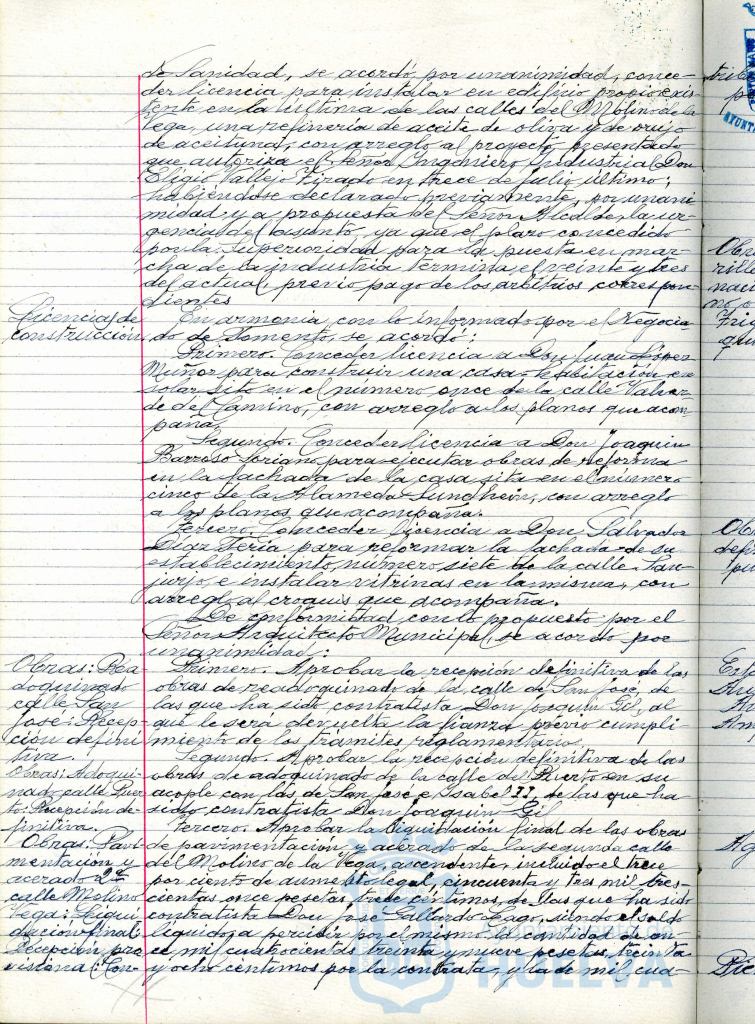 de Sanidad, se acordó por unanimidad, conce-
der licencia para instalar en edificio propio exis-
tente en la última de las calles del Molino de la
Vega, una refinería de aceite de oliva y de orujo
de aceitunas, con arreglo al proyecto presentado
que autoriza el Señor Ingeniero Industrial Don
Eligio Vallejo Tirado en trece de Julio último;
habiéndose declarado previamente, por unani-
midad y a propuesta del Señor Alcalde, la ur-
gencia del asunto, ya que el plazo concedido
por la Superioridad para la puesta en mar-
cha de la industria termina el veinte y tres
del actual, previo pago de los arbitrios correspon-
dientes.
Licencias de
construcción.
En armonía con lo informado por el Negocia-
do de Fomento, se acordó:
Primero. Conceder licencia a Don Juan López
Muñoz para construir una casa-habitación en
solar sito en el número once de la calle Valver-
de del Camino, con arreglo a los planos que acom-
paña.
Segundo. Conceder licencia a Don Joaquín
Barroso Soriano para ejecutar obras de reforma
en la fachada de la casa sita en el número
cinco de la Alameda Sundheim, con arreglo
a los planos que acompaña.
Tercero. Conceder licencia a Don Salvador
Díaz Feria para reformar la fachada de su
establecimiento número siete de la calle San-
jurjo e instalar vitrinas en la misma, con
arreglo al croquis que acompaña.
De conformidad con lo propuesto por el
Señor Arquitecto Municipal, se acordó por
unanimidad:
Obras: Rea-
doquinado
calle San
José: Recep-
ción defini-
tiva.
Primero. Aprobar la recepción definitiva de las
obras de readoquinado de la calle de San José, de
las que ha sido contratista Don Joaquín Gil, al
que le será devuelta la fianza previo cumpli-
miento de los trámites reglamentarios.
Obras: Adoqui-
nado calle Puer-
to: Recepción de-
finitiva.
Segundo. Aprobar la recepción definitiva de las
obras de adoquinado de la calle del Puerto en su
acople con las de San José e Isabel II, de las que ha
sido contratista Don Joaquín Gil.
Obras. Pavi-
mentación y
acerado 2ª
calle Molino
Vega: Liqui-
dación final.
Recepción pro-
visional: Con-
Tercero. Aprobar la liquidación final de las obras
de pavimentación y acerado de la segunda calle
del Molino de la Vega, ascendente, incluido el trece
por ciento de aumento legal, cincuenta y tres mil tres-
cientas once pesetas, trece céntimos, de las que ha sido
contratista Don José Gallardo Lago, siendo el saldo
líquido a percibir por el mismo la cantidad de on-
ce mil cuatrocientas treinta y nueve pesetas, treinta
y ocho céntimos por la contrata, y la de mil cua-
HUELVA